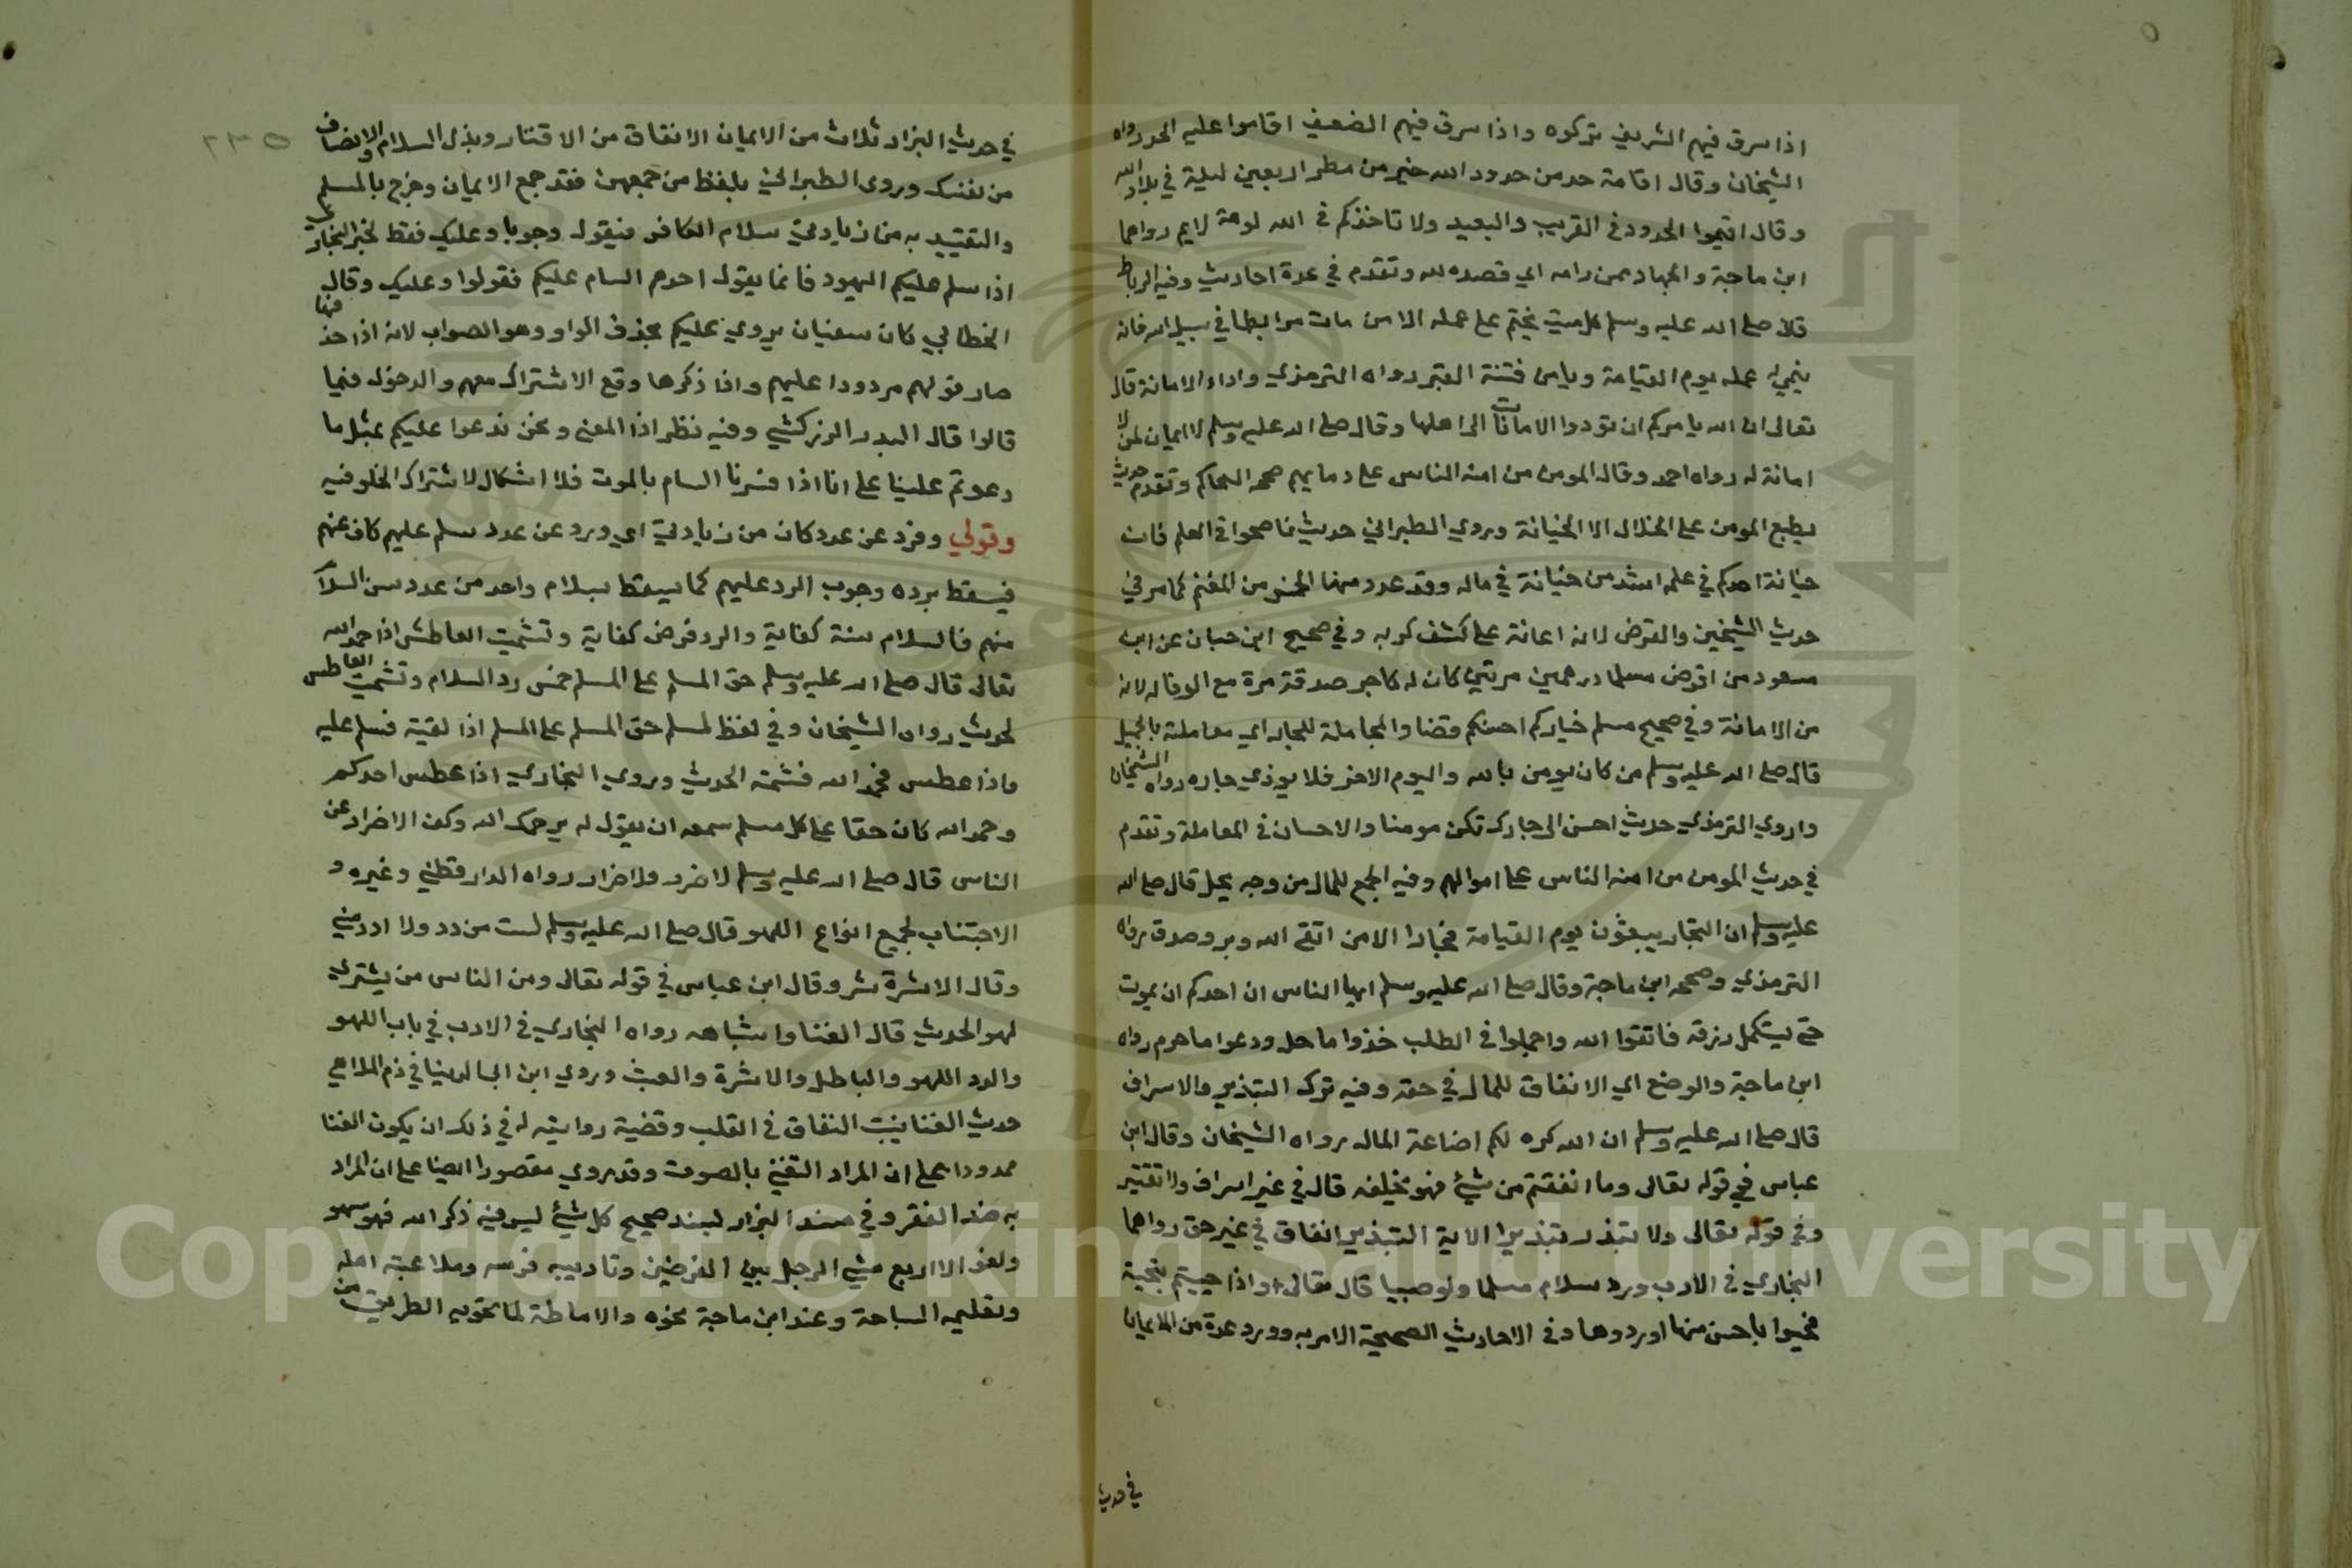 اذا سرق فيهم الشريف تركوه واذا سرق فيهم الضعيف اقاموا عليه الحد رواه
الشيخان وقال اقامة حد من حدود الله خير من مطر اربعين ليلة في بلاد الله
وقال اقيموا الحدود في القريب والبعيد ولا تاخذكم في الله لومة لايم رواهما
ابن ماجة والجهاد ممن رامه اي قصده لله وتقدم في عدة احاديث وفيه الرباط
قال صلى الله عليه وسلم كل ميت يختم على عمله الا من مات مرابطا في سبيل الله فانه
ينمي له عمله يوم القيامة ويامن فتنة القبر رواه الترمذي واداء الامانة قال
تعالى ان الله يامركم ان تودوا الامانات الى اهلها وقال صلى الله عليه وسلم لا ايمان لمن لا
امانة له رواه احمد وقال المومن من امنه الناس على دمايهم صححه الحاكم وتقدم حديث
يطبع المومن على الخلال الا الخيانة وروي الطبراني حديث ناصحوا في العلم فان
خيانة احدكم في علمه اشد من خيانة في ماله وقد عدد منها الخمس من المغنم كما مر في
حديث الشيخين والقرض لانه اعانة على كشف كربه وفي صحيح ابن حبان عن ابن
مسعود من اقرض مسلما درهمين مرتين كان له كاجر صدقة مرة مع الوفا له لانه
من الامانة وفي صحيح مسلم خياركم احسنكم قضا والمجاملة للجار اي معاملته بالجميل
قال صلى الله عليه وسلم من كان يومن بالله واليوم الاخر فلا يوذي جاره رواه الشيخان
واروي الترمذي حديث احسن الى جارك تكن مومنا والاحسان في المعاملة وتقدم
في حديث المومن من امنه الناس على اموالهم وفيه الجمع للمال من وجه يحل قال صلى الله
عليه وسلم ان التجار يبعثون يوم القيامة فجارا الا من اتقى الله وبر وصدق رواه
الترمذي وصححه ابن ماجة وقال صلى الله عليه وسلم ايها الناس ان احدكم ان يموت
حتى يستكمل رزقه فاتقوا الله واجملوا في الطلب خذوا ما حل ودعوا ما حرم رواه
ابن ماجة والوضع اي الانفاق للمال في حقه وفيه ترك التبذير والاسراف
قال صلى الله عليه وسلم ان الله كره لكم اضاعة المال رواه الشيخان وقال ابن
عباس في قوله تعالى وما انفقتم من شيئ فهو يخلفه قال في غير اسراف ولا تقتير
وفي قوله تعالى ولا تبذر تبذيرا الاية التبذير انفاق في غير حق رواهما
البخاري في الادب ورد سلام مسلما ولو صبيا قال تعالى واذا حييتم بتحية
فحيوا باحسن منها او ردوها وفي الاحاديث الصحيحة الامر به وورد عدة من الايمان
في حديث
في حديث البزار ثلاث من الايمان الانفاق من الاقتار وبذل السلام والانصاف
من نفسك وروى الطبراني بلفظ من جمعهن فقد جمع الايمان وخرج بالمسلم
والتقييد به من زيادتي سلام الكافر فيقول وجوبا وعليك فقط لخبر البخاري
اذا سلم عليكم اليهود فانما يقول احدهم السام عليكم فقولوا وعليك وقال
الخطابي كان سفيان يروي عليكم بحذف الواو وهو الصواب لانه اذا حذفها
صار قولهم مردودا عليهم واذا ذكرها وقع الاشتراك معهم والدخول فيما
قالوا قال البدر الزركشي وفيه نظر اذ المعنى ونحن ندعوا عليكم بمثل ما
دعوتم علينا على انا اذا فسرنا السام بالموت فلا اشكال لاشتراك الخلق فيه
وقولي وفرد عن عدد كان من زيادتي اي ورد عن عدد سلم عليهم كاف عنهم
فيسقط برده وجوب الرد عليهم كما يسقط بسلام واحد من عدد سن السلام
منهم فالسلام سنة كفاية والرد فرض كفاية وتشميت العاطس اذا حمد الله
تعالى قال صلى الله عليه وسلم حق المسلم على المسلم خمس رد السلام وتشميت العاطس
الحديث رواه الشيخان وفي لفظ لمسلم حق المسلم على المسلم اذا لقيته فسلم عليه
واذا عطس فحمد الله فشمته الحديث وروي البخاري اذا عطس احدكم
وحمد الله كان حقا على كل مسلم سمعه ان يقول له يرحمك الله وكف الاضرار عن
الناس قال صلى الله عليه وسلم لا ضرر ولا ضرار رواه الدارقطني وغيره و
الاجتناب لجميع انواع اللهو قال صلى الله عليه وسلم لست من دد ولا الدد مني
وقال الاشرة شر وقال ابن عباس في قوله تعالى ومن الناس من يشتري
لهو الحديث قال الغنا واشباهه رواه البخاري في الادب في باب اللهو
والدد اللهو والباطل والاشرة والعبث وروي ابن ابي الدنيا في ذم الملاهي
حديث الغنا ينبت النفاق في القلب وقضية روايته له في ذلك ان يكون الغنا
ممدودا على ان المراد التغني بالصوت وقد روي مقصورا ايضا على ان المراد
به ضد الفقر وفي مسند البزار بسند صحيح كل شيئ ليس فيه ذكر الله فهو سهو
ولغو الا اربع مشي الرجل بين الغرضين وتاديبه فرسه وملاعبته اهله
وتعليمه السباحة وعند ابن ماجة نحوه والاماطة لما تحويه الطريق من
٢٣٥
Copyright © King Saud University